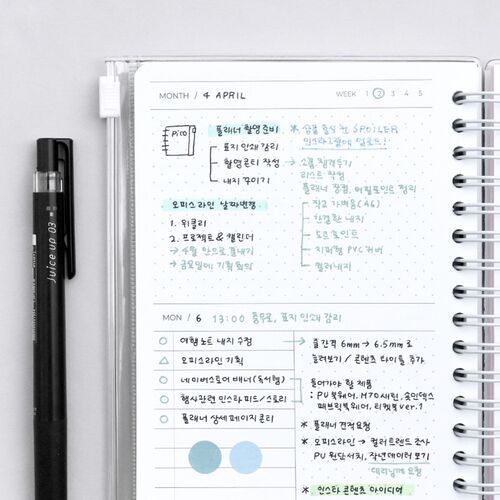 MONTH / 4 APRIL
WEEK 1 2 3 4 5
Pico
플래너 촬영준비
표지 인쇄 감리
촬영 콘티 작성
내지 꾸미기
* 상품 출시 전 SPOILER
인스타그램에 업로드!
→ 소품 챙겨두기
리스트 작성
플래너 장점, 어필포인트 정리
작고 가벼움 (A6)
간결한 내지
도트 포인트
지퍼형 PVC 커버
컬러내지
오피스라인 날짜변경
1. 위클리
2. 프로젝트 & 캘린더
→ 4월 안으로 끝내기
→ 금요일에 기획 회의
MON / 6 13:00 충무로, 표지 인쇄 감리
여행노트 내지 수정
오피스라인 기획
네이버스토어 배너 (독서템)
행사관련 인스타 피드/스토리
플래너 상세페이지 콘티
→ 줄간격 6mm → 6.5mm로
늘려보기 / 콘텐츠 타이틀 추가
들어가야 할 제품
: PU북웨어, M70사틴, 굿인덱스
패브릭북웨어, 리켓북 ver.1
* 플래너 견적요청
* 오피스라인 → 컬러트렌드 조사
PU 원단서치, 작년데이터 보기
대리님께 요청
* 인스타 콘텐츠 아이디어
Juice up 03